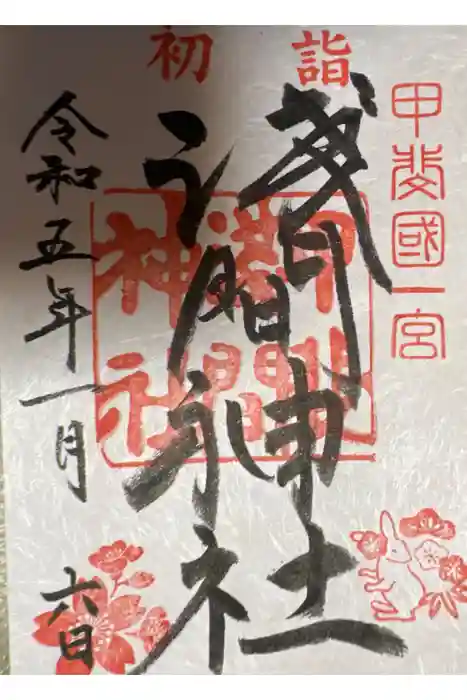 初詣
甲斐國一宮
浅間神社
甲斐
淺間
神社
令和五年一月
六日